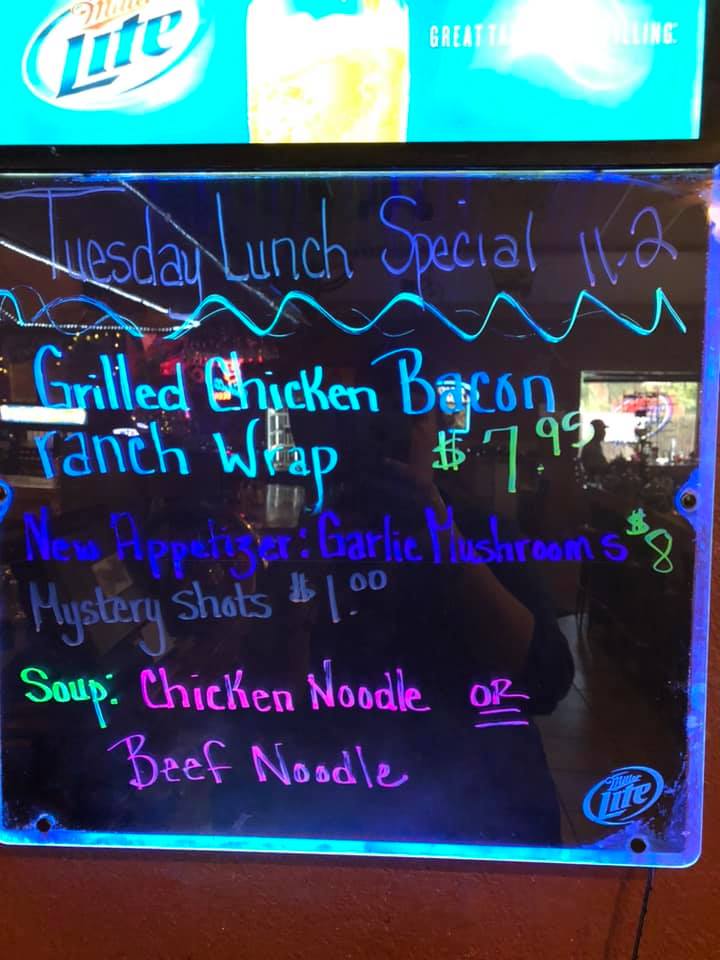 Miller
Lite
GREAT TA LLING.
Tuesday Lunch Special 11-2
Grilled Chicken Bacon
ranch Wrap $7.95
New Appetizer: Garlic Mushrooms $8
Mystery Shots $1.00
Soup: Chicken Noodle OR
Beef Noodle
Miller
Lite